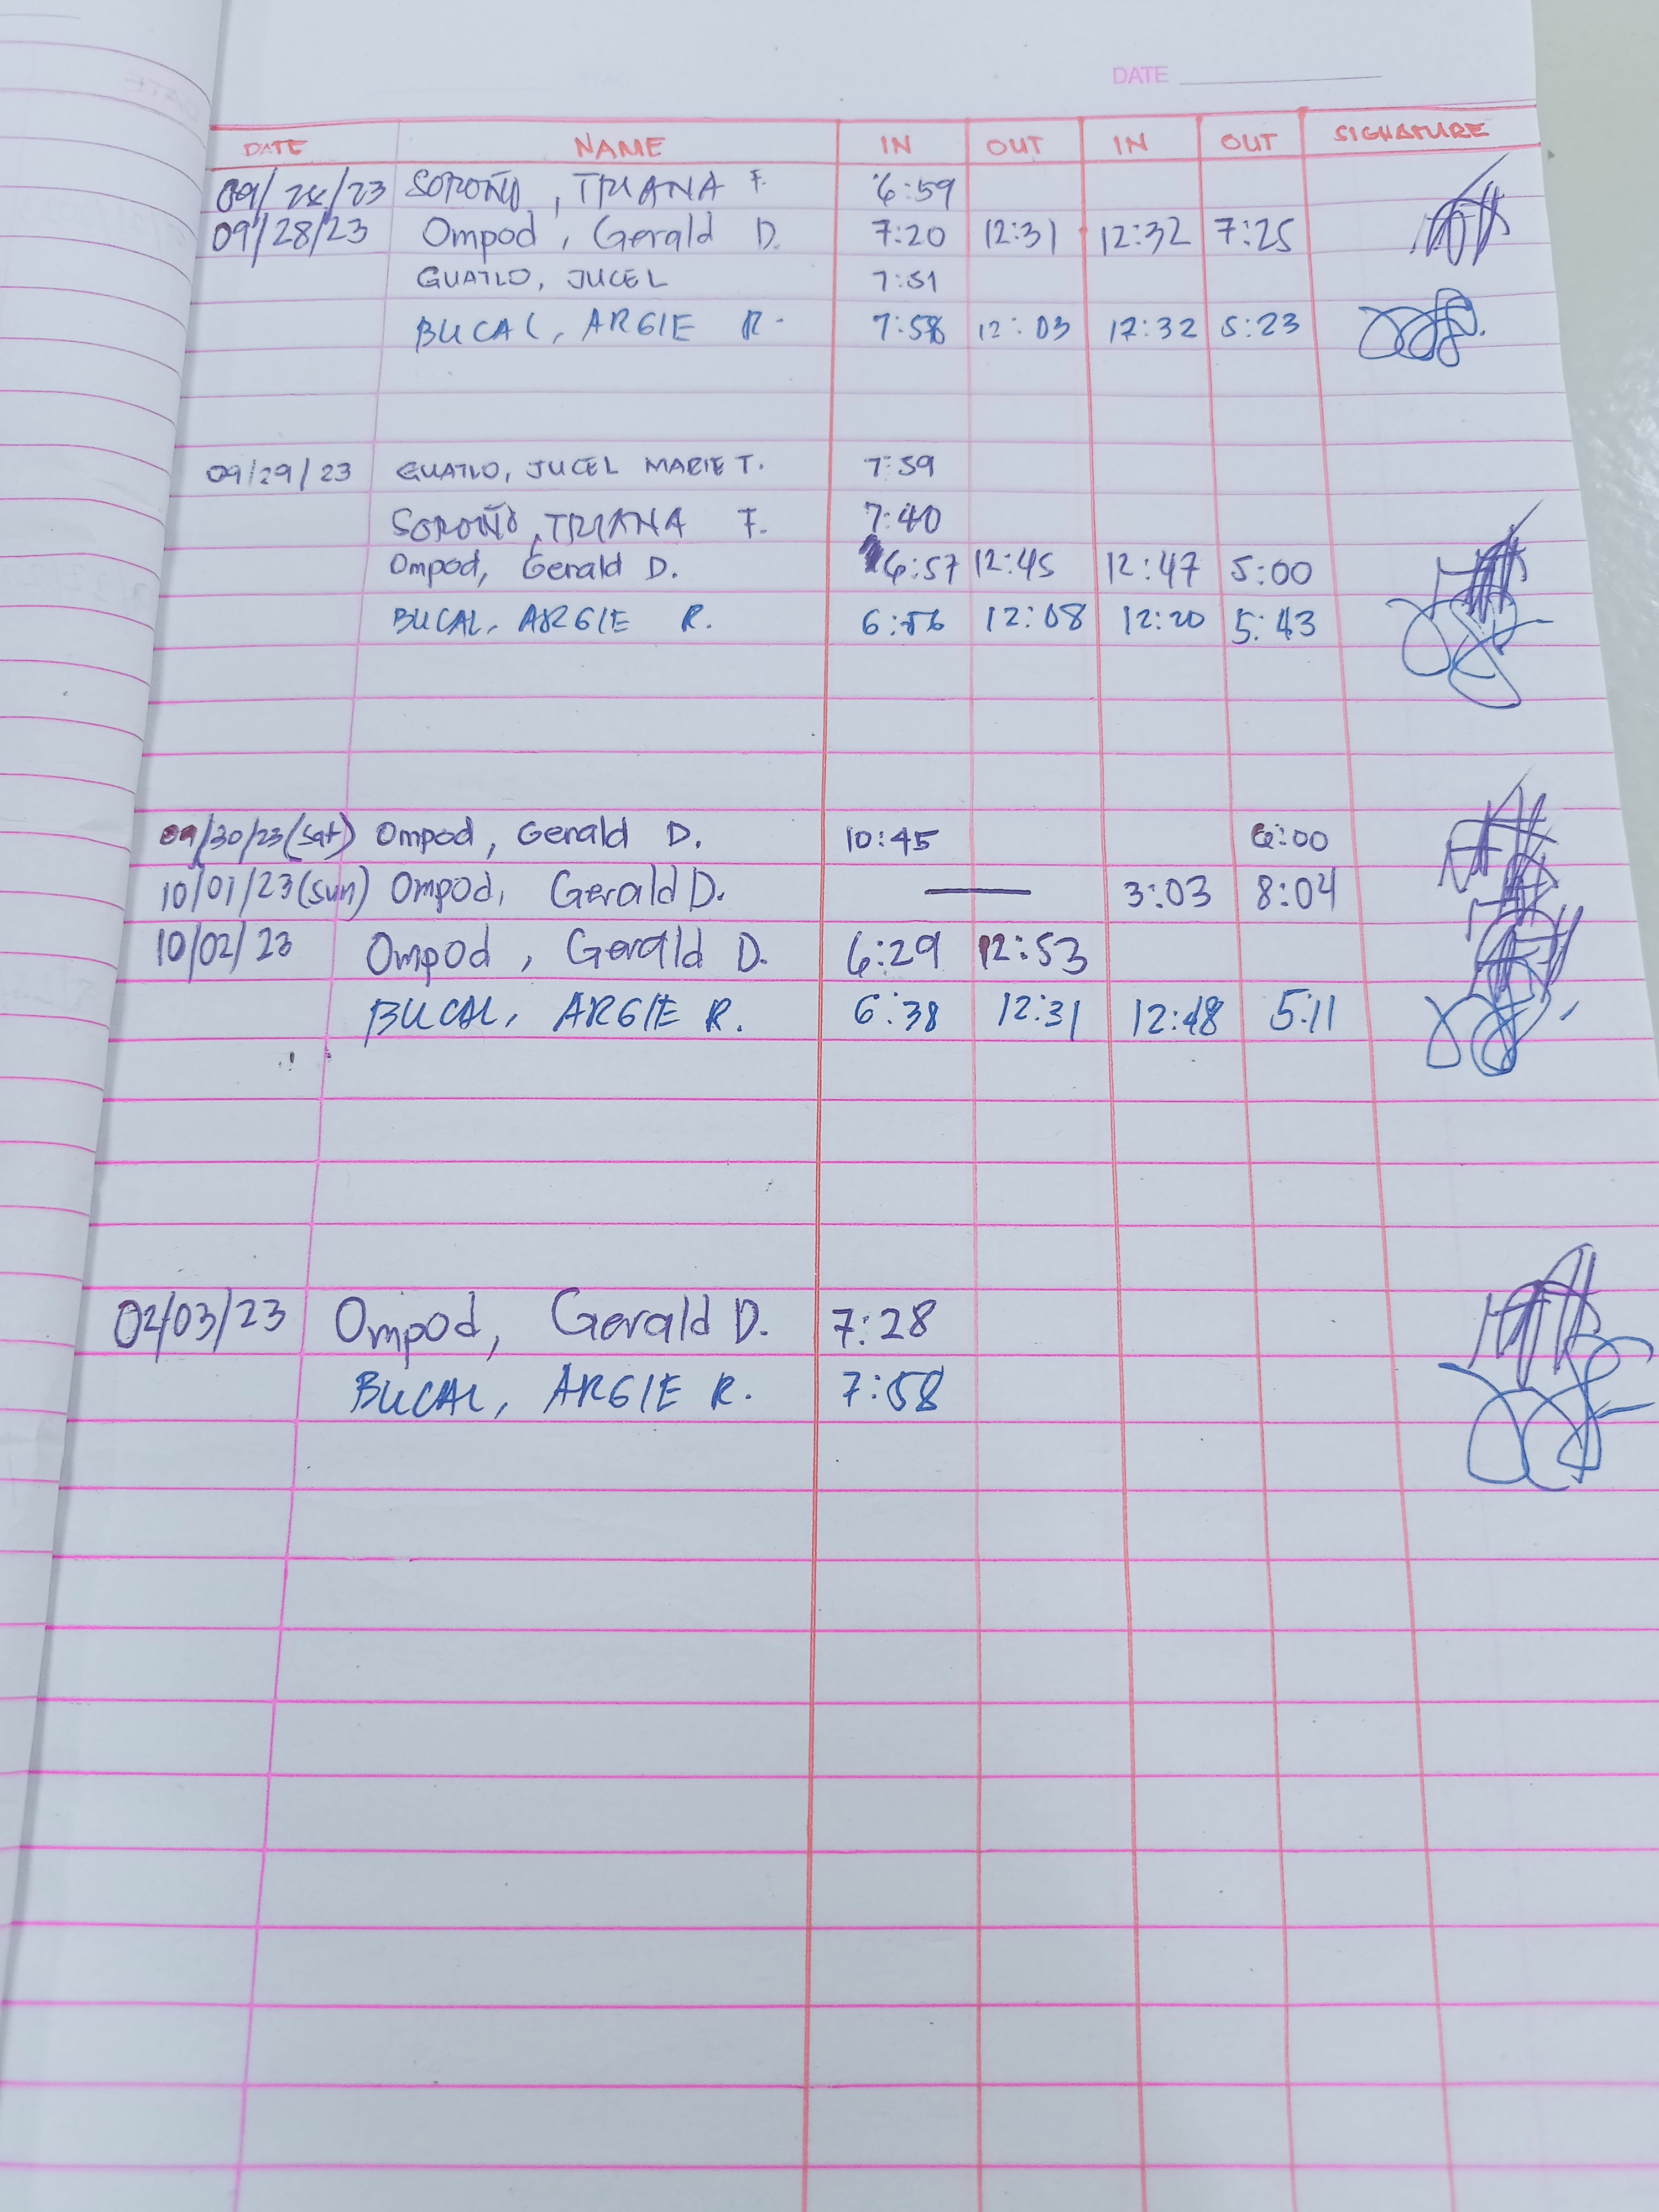 DATE
DATE NAME IN OUT IN OUT SIGNATURE
09/28/23 SOROÑO, TRIANA F. 6:59
09/28/23 Ompod, Gerald D. 7:20 12:31 12:32 7:25
GUATLO, JUCEL 7:51
BUCAL, ARGIE R. 7:58 12:03 12:32 5:23
09/29/23 GUATLO, JUCEL MARIE T. 7:39
SOROÑO, TRIANA F. 7:40
Ompod, Gerald D. 6:57 12:45 12:47 5:00
BUCAL, ARGIE R. 6:56 12:08 12:20 5:43
09/30/23 (sat) Ompod, Gerald D. 10:45 6:00
10/01/23 (sun) Ompod, Gerald D. — 3:03 8:04
10/02/23 Ompod, Gerald D. 6:29 12:53
BUCAL, ARGIE R. 6:38 12:31 12:48 5:11
02/03/23 Ompod, Gerald D. 7:28
BUCAL, ARGIE R. 7:58